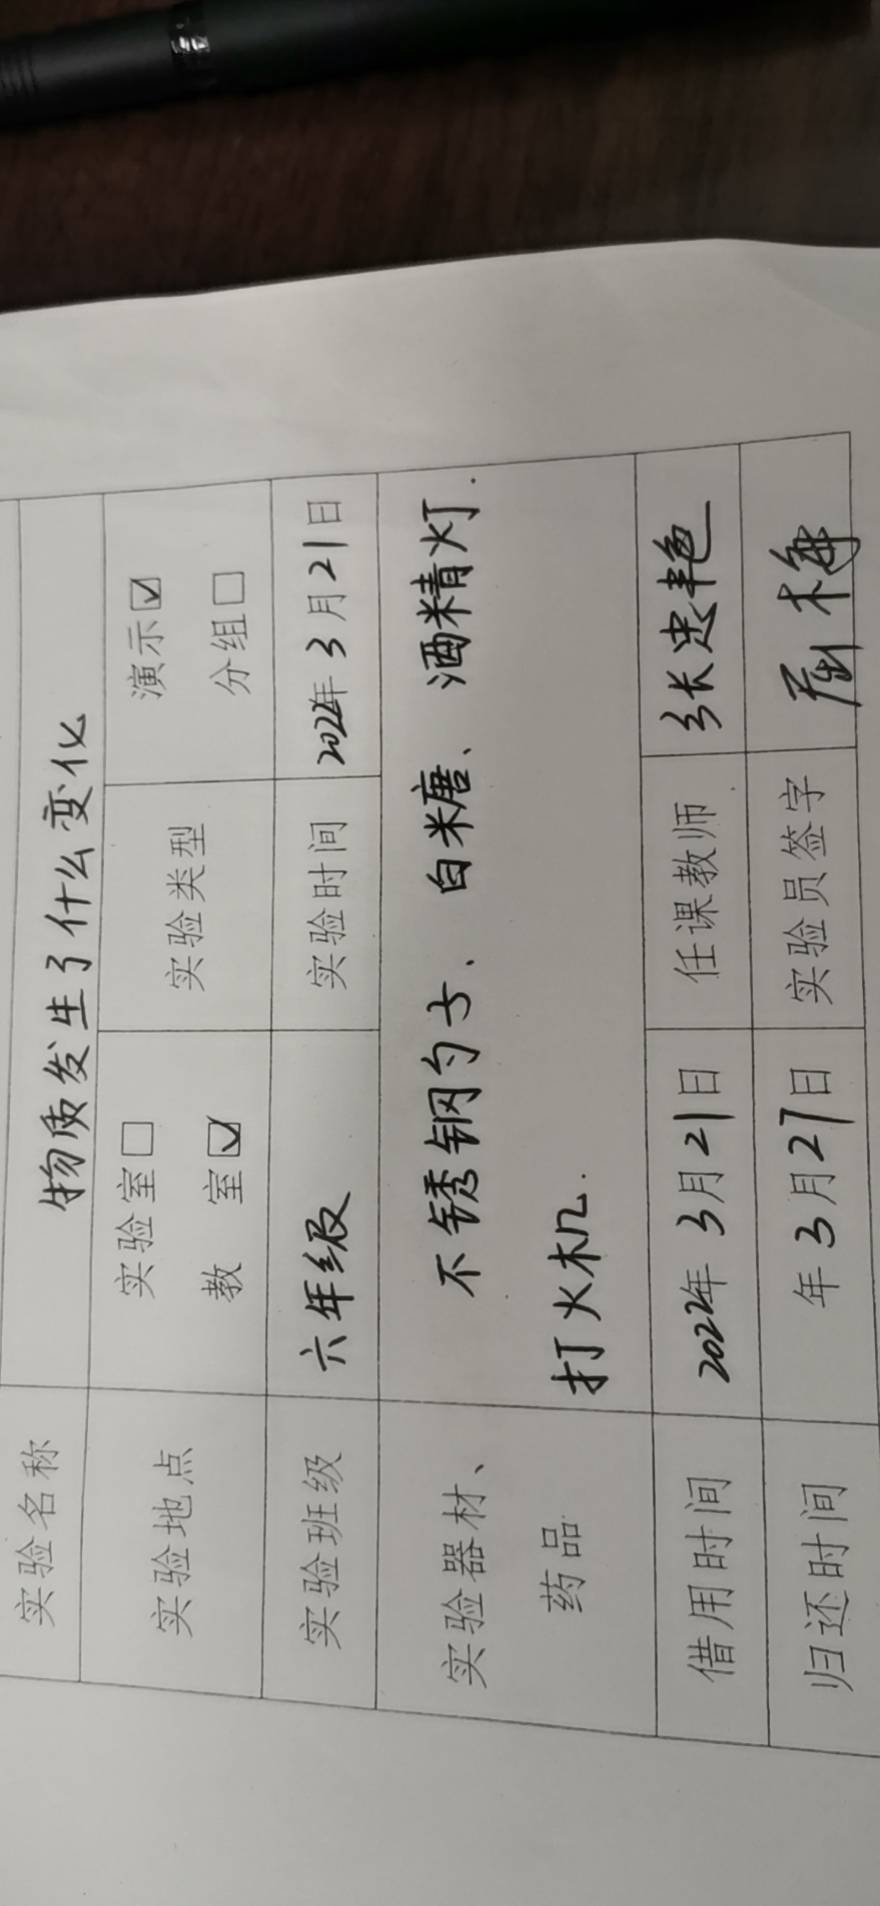 实验名称 物质发生了什么变化
实验地点 实验室□ 实验类型 演示☑
教 室☑ 分组□
实验班级 六年级 实验时间 2022年3月21日
实验器材、 不锈钢勺子、白糖、酒精灯.
药品 打火机.
借用时间 2022年3月21日 任课教师 张忠艳
归还时间 年3月27日 实验员签字 梅